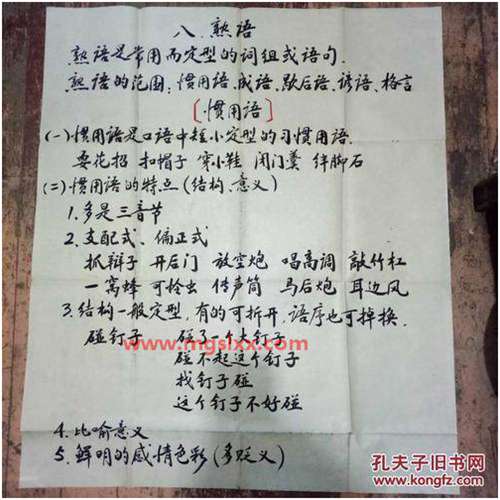 八、熟语
熟语是常用而定型的词组或语句.
熟语的范围:惯用语、成语、歇后语、谚语、格言
[惯用语]
(一)惯用语是口语中短小定型的习惯用语.
耍花招 扣帽子 穿小鞋 闭门羹 绊脚石
(二)惯用语的特点(结构、意义)
1.多是三音节
2.支配式、偏正式
抓辫子 开后门 放空炮 唱高调 敲竹杠
一窝蜂 可怜虫 传声筒 马后炮 耳边风
3.结构一般定型,有的可拆开,语序也可掉换.
碰钉子 碰了一个大钉子
www.mgslxx.com
碰不起这个钉子
找钉子碰
这个钉子不好碰
4.比喻意义
5.鲜明的感情色彩(多贬义)
孔夫子旧书网
www.kongfz.com